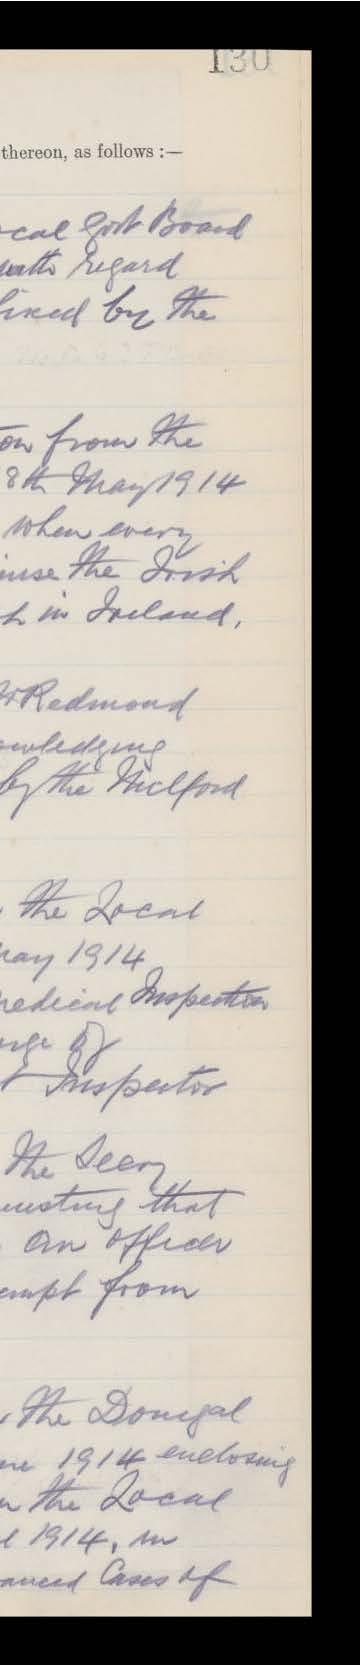 130
thereon, as follows :—
ocal Govt Board
with regard
fixed by the
on from the
8th May 1914
when every
the Irish
h in Ireland,
Mr Redmond
owledging
by the Milford
the Local
May 1914
medical Inspection
of
t Inspector
the Secy
uesting that
an officer
empt from
the Donegal
une 1914 enclosing
the Local
l 1914, in
anced Cases of